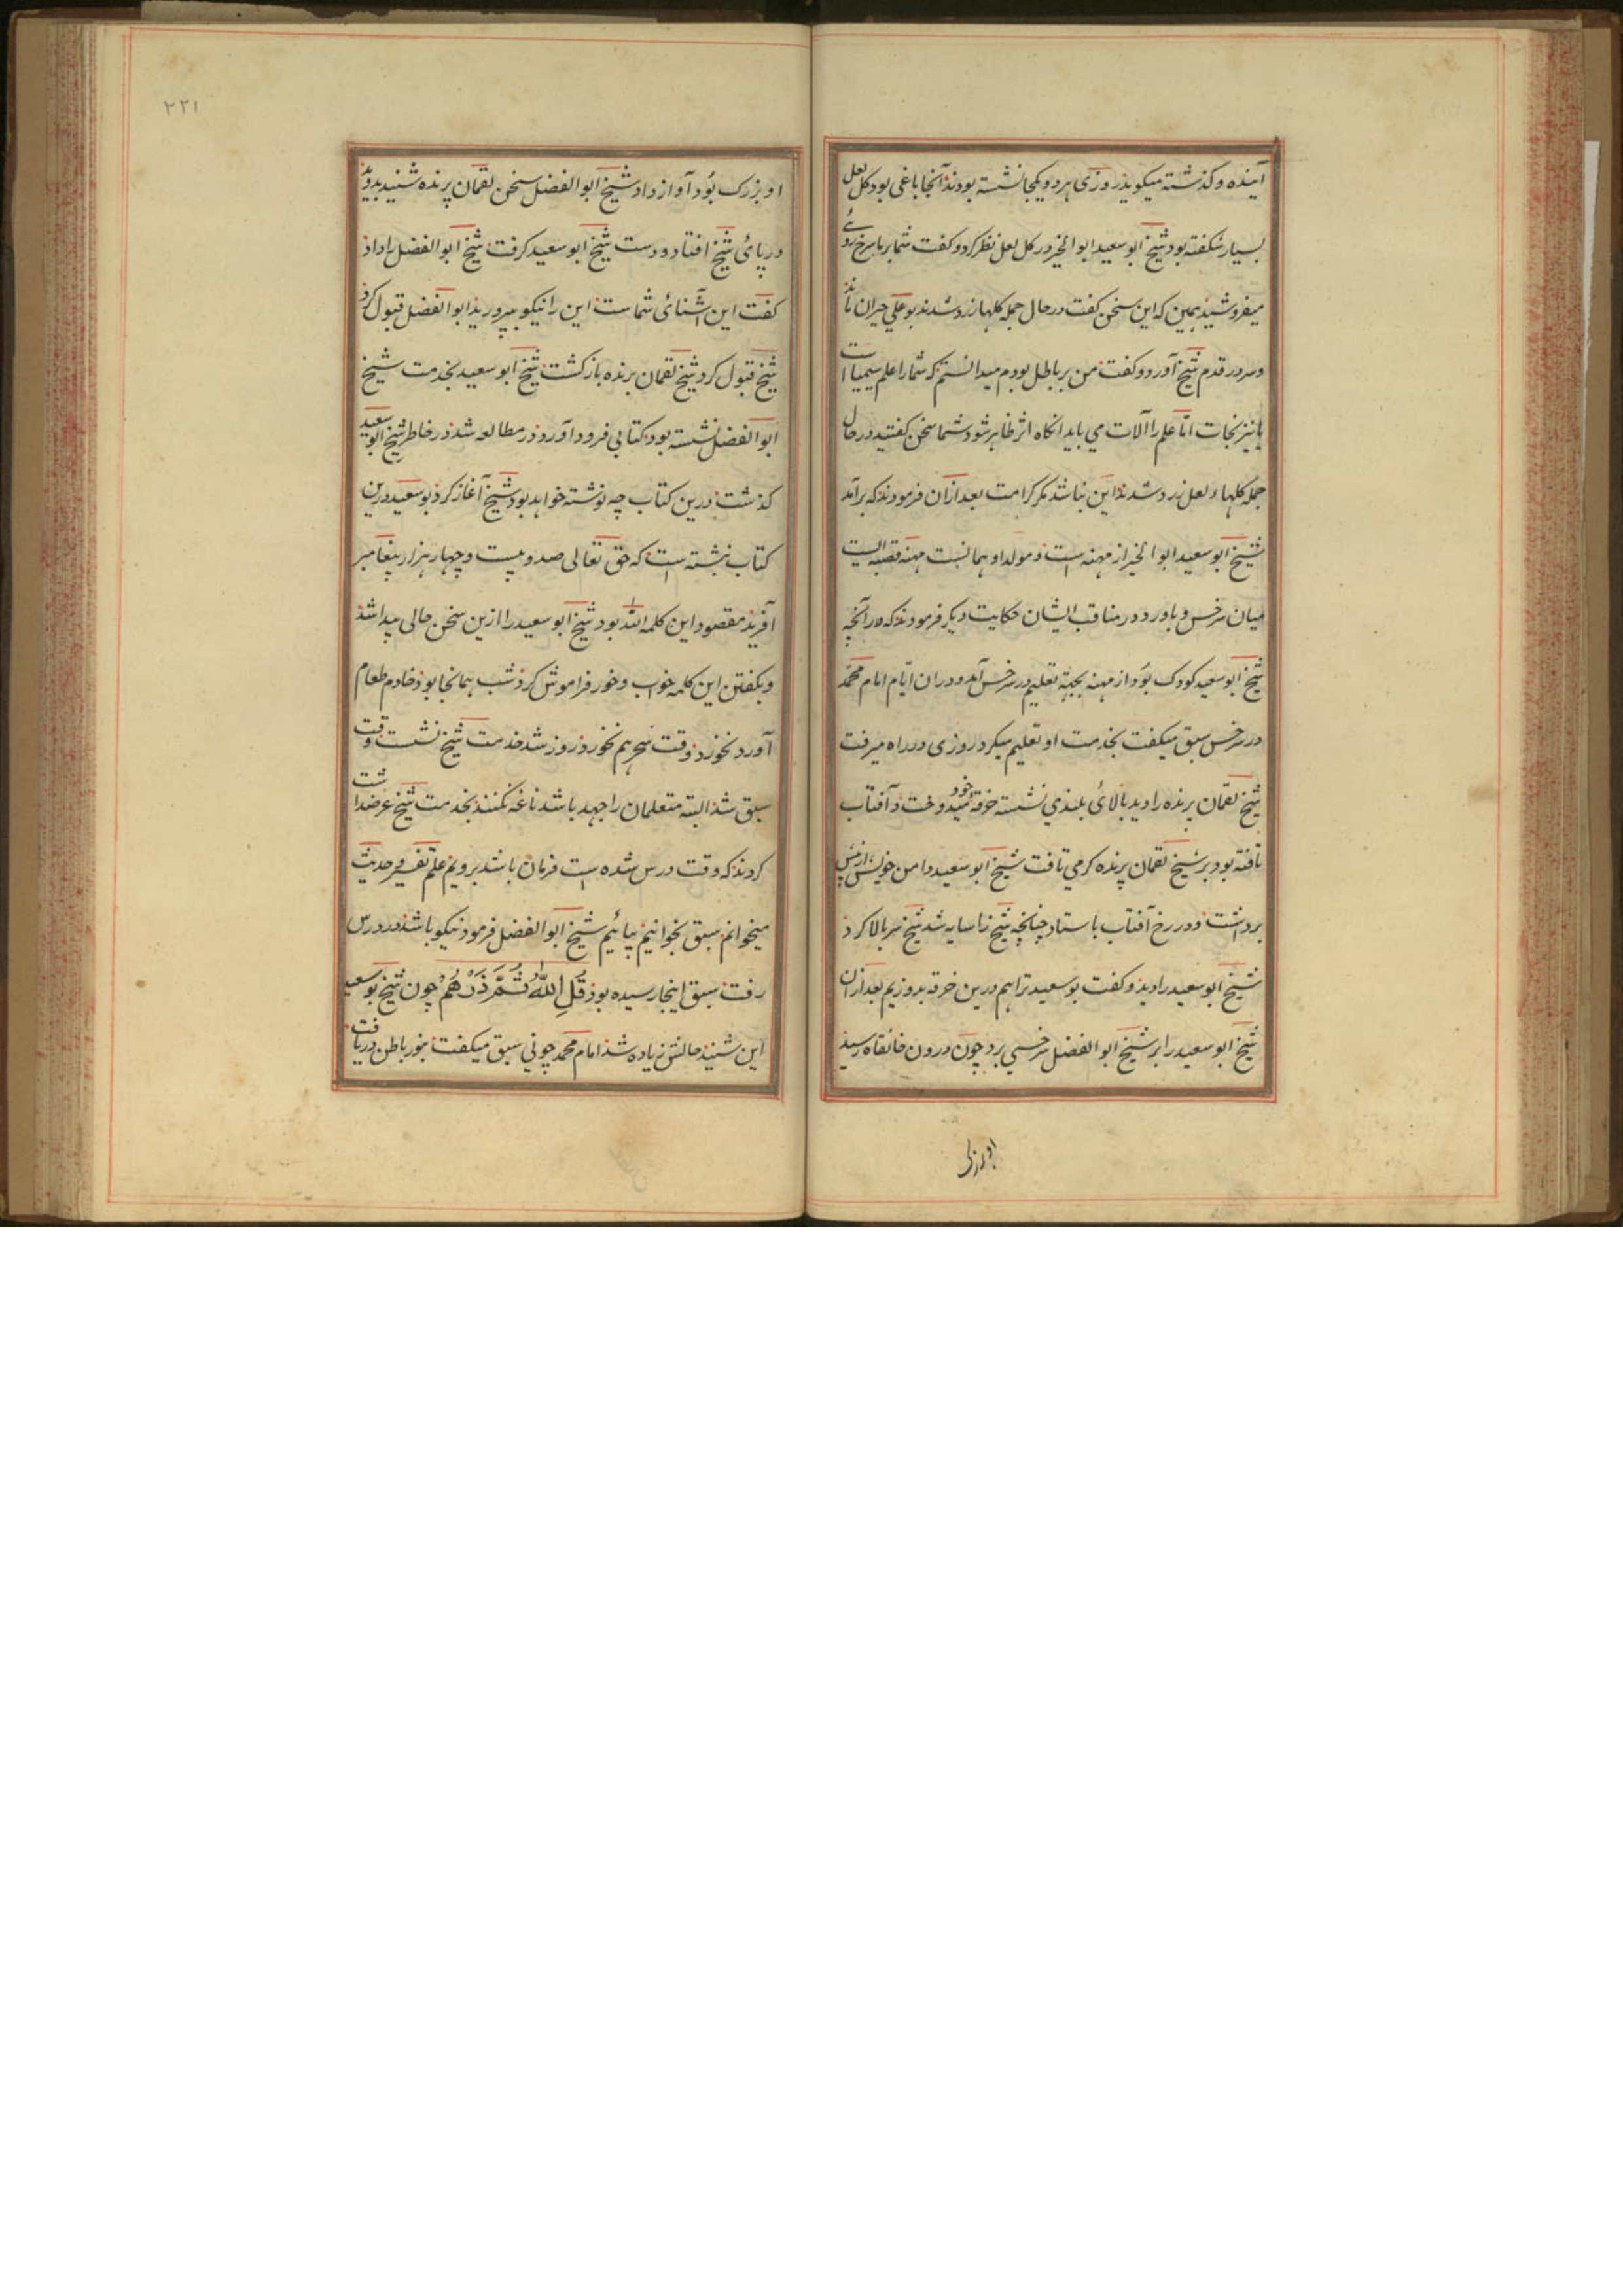 آینده و کذشته میکویذ روزی هر دو یکجا نشسته بودند آنجا باغی بود کل لعل
بسیار شکفته بود شیخ ابو سعید ابو الخیر در کل لعل نظر کرد و کفت شما بر ما سرخ روئے
میفروشیذ همین که این سخن کفت در حال جمله کلها زرد شدند بو علی حیران ماند
و سر در قدم شیخ آورد و کفت من بر باطل بودم میدانستم که شما را علم سیمیا است
یا نیرنجات اما علم را آلات می باید انکاه اثر ظاهر شود شما سخن کفتید در حال
جمله کلهاء لعل زرد شدند این نباشد مکر کرامت بعد ازان فرمودند که برآمد
شیخ ابو سعید ابو الخیر از مهنه است و مولد او همانست مهنه قصبه ایست
میان سرخس و باورد در مناقب ایشان حکایت دیکر فرمودند که در آنچه
شیخ ابو سعید کودک بود از مهنه بجهة تعلیم در سرخس آمد و دران ایام امام محمد
در سرخس سبق میکفت بخدمت او تعلیم میکرد روزی در راه میرفت
شیخ لقمان پرنده را دید بالائ بلندی نشسته خرقهٔ خود میدوخت و آفتاب
تافته بود بر شیخ لقمان پرنده کرمی تافت شیخ ابو سعید دامن خویش از پس
برداشت و در رخ آفتاب باستاد چنانچه شیخ را سایه شد شیخ سر بالا کرد
شیخ ابو سعید را دید و کفت بو سعید ترا هم درین خرقه بدوزیم بعد ازان
شیخ ابو سعید را بر شیخ ابو الفضل سرخسی برد چون درون خانقاه رسید
او بزرک
۲۳۱
او بزرک بود آواز داد شیخ ابو الفضل سخن لقمان پرنده شنید بدوید
در پائ شیخ افتاد و دست شیخ ابو سعید کرفت شیخ ابو الفضل را داد
کفت این آشنائ شما ست این را نیکو بپرورید ابو الفضل قبول کرد
شیخ قبول کرد شیخ لقمان پرنده باز کشت شیخ ابو سعید بخدمت شیخ
ابو الفضل نشسته بود کتابی فرود آورد در مطالعه شد در خاطر شیخ ابو سعید
کذشت درین کتاب چه نوشته خواهد بود شیخ آغاز کرد بو سعید درین
کتاب نبشته است که حق تعالی صد و بیست و چهار هزار پیغامبر
آفرید مقصود این کلمه الله بود شیخ ابو سعید را ازین سخن حالی پیدا شد
و بکفتن این کلمه خواب و خور فراموش کرد شب همانجا بود خادم طعام
آورد نخورد وقت سحر هم نخورد روز شد خدمت شیخ نشست وقت
سبق شد البته متعلمان را جهد باشد ناغه نکنند بخدمت شیخ عرضداشت
کردند که وقت درس شده است فرمان باشد برویم علم تفسیر حدیث
میخوانم سبق بخوانیم بیائیم شیخ ابو الفضل فرمود نیکو باشد در درس
رفت سبق اینجا رسیده بود قُلِ اللّٰهُ ثُمَّ ذَرْهُمْ چون شیخ بو سعید
این شنید حالش زیاده شد امام محمد چونی سبق میکفت بنور باطن دریافت